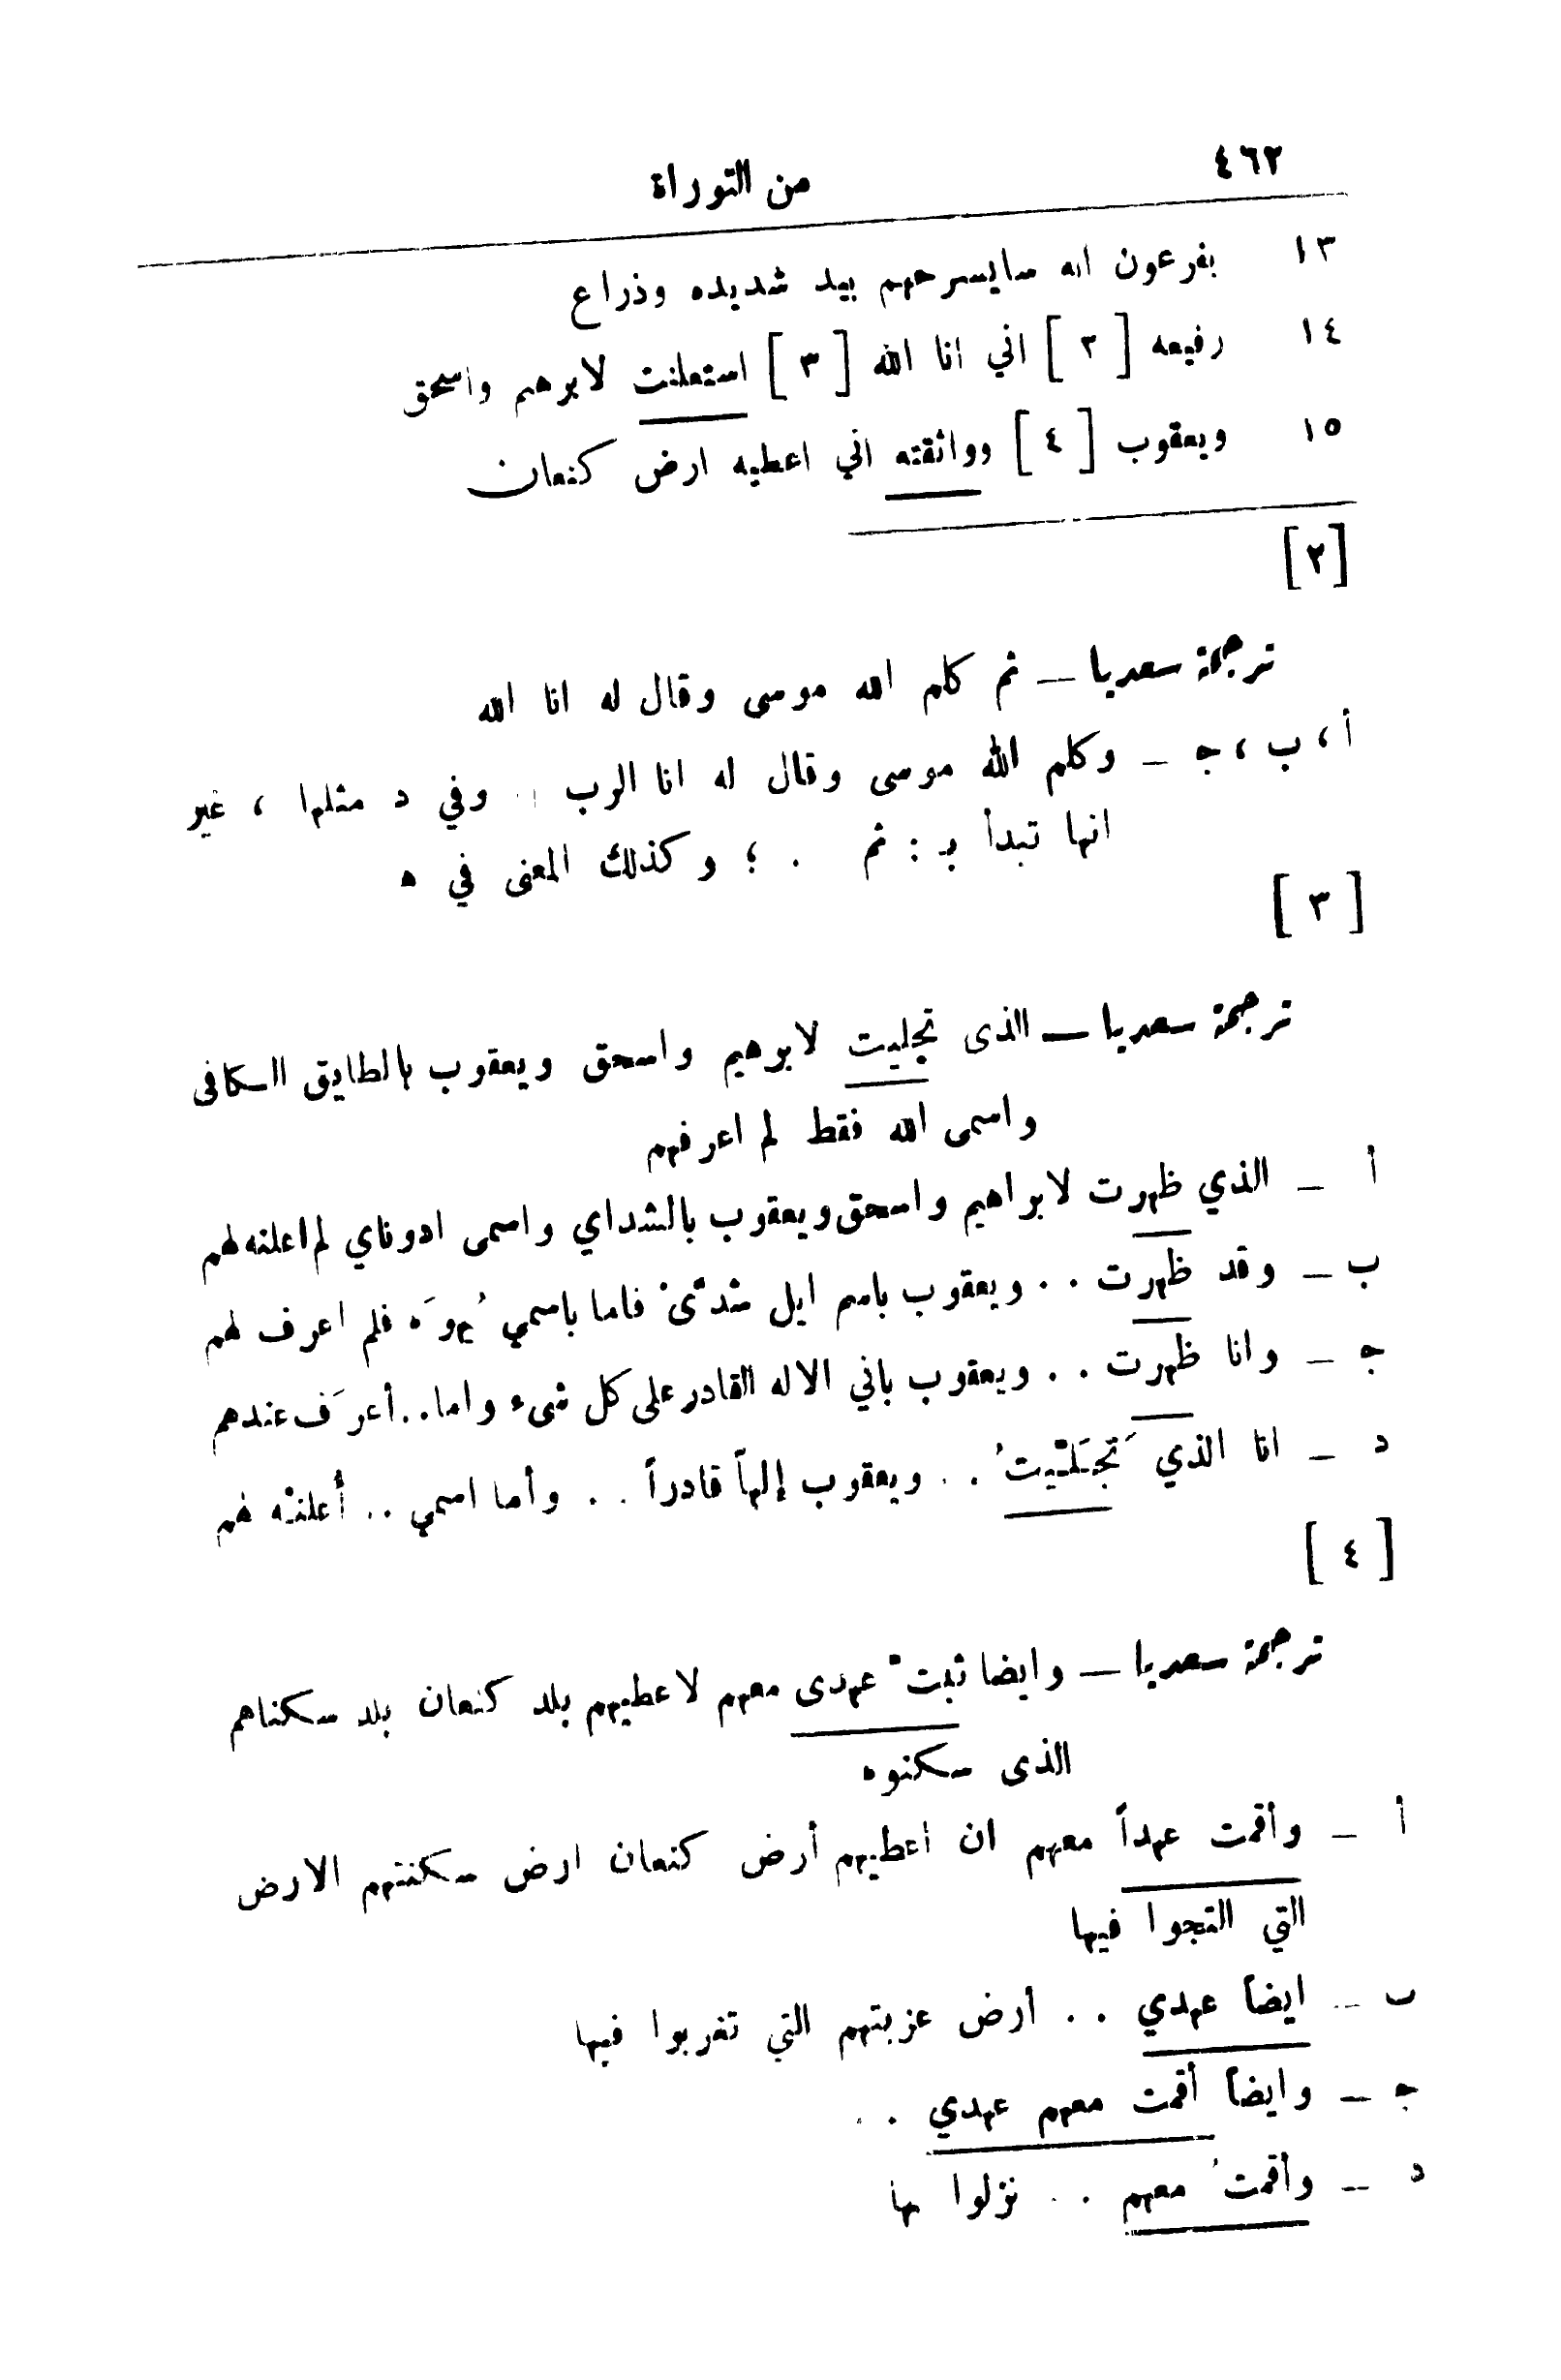 ٤٦٢
من التوراة
١٣ بفرعون انه سايسرحهم بيد شديده وذراع
١٤ رفيعه [ ٢ ] اني انا الله [ ٣ ] استعلنت لابرهم واسحق
١٥ ويعقوب [ ٤ ] وواثقته اني اعطيه ارض كنعان
[٢]
ترجمة سعديا — ثم كلم الله موسى وقال له انا الله
أ ، ب ، ج – وكلم الله موسى وقال له انا الرب .. وفي د مثلها ، غير
انها تبدأ بـ : ثم . ؛ وكذلك المعنى في ه
[ ٣ ]
ترجمة سعديا — الذى تجليت لابرهيم واسحق ويعقوب بالطايق الكافى
واسمى الله فقط لم اعرفهم
أ – الذي ظهرت لابراهيم واسحق ويعقوب بالشداي واسمى ادوناي لم اعلنه لهم
ب – وقد ظهرت . . ويعقوب باسم ايل شدّى فاما باسمي فلم اعرف لهم
ج – وانا ظهرت . . ويعقوب باني الاله القادر على كل شىء واما . . أعرَف عندهم
د – انا الذي تَجَلَّيتُ . . ويعقوب إلهاً قادراً . . وأما اسمي . . أعلنْه لهم
[ ٤ ]
ترجمة سعديا — وايضا ثبت عهدى معهم لاعطيهم بلد كنعان بلد سكناهم
الذى سكنوه
أ – وأقمت عهداً معهم ان اعطيهم أرض كنعان ارض سكنتهم الارض
التي التجوا فيها
ب – ايضاً عهدي . . أرض عزبتهم التي تغربوا فيها
ج – وايضاً أقمت معهم عهدي . .
د – وأقمتُ معهم . . نزلوا بها